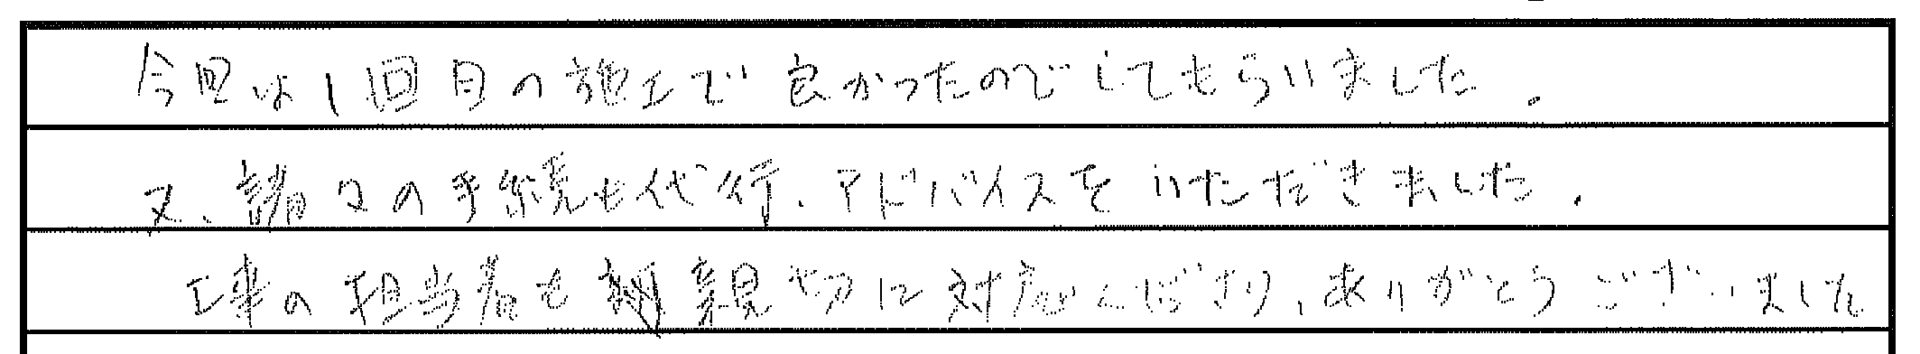 今回は1回目の施工で良かったのでしてもらいました。
又、諸々の手続も代行、アドバイスをいただきました。
工事の担当者も親切に対応くださり、ありがとうございました